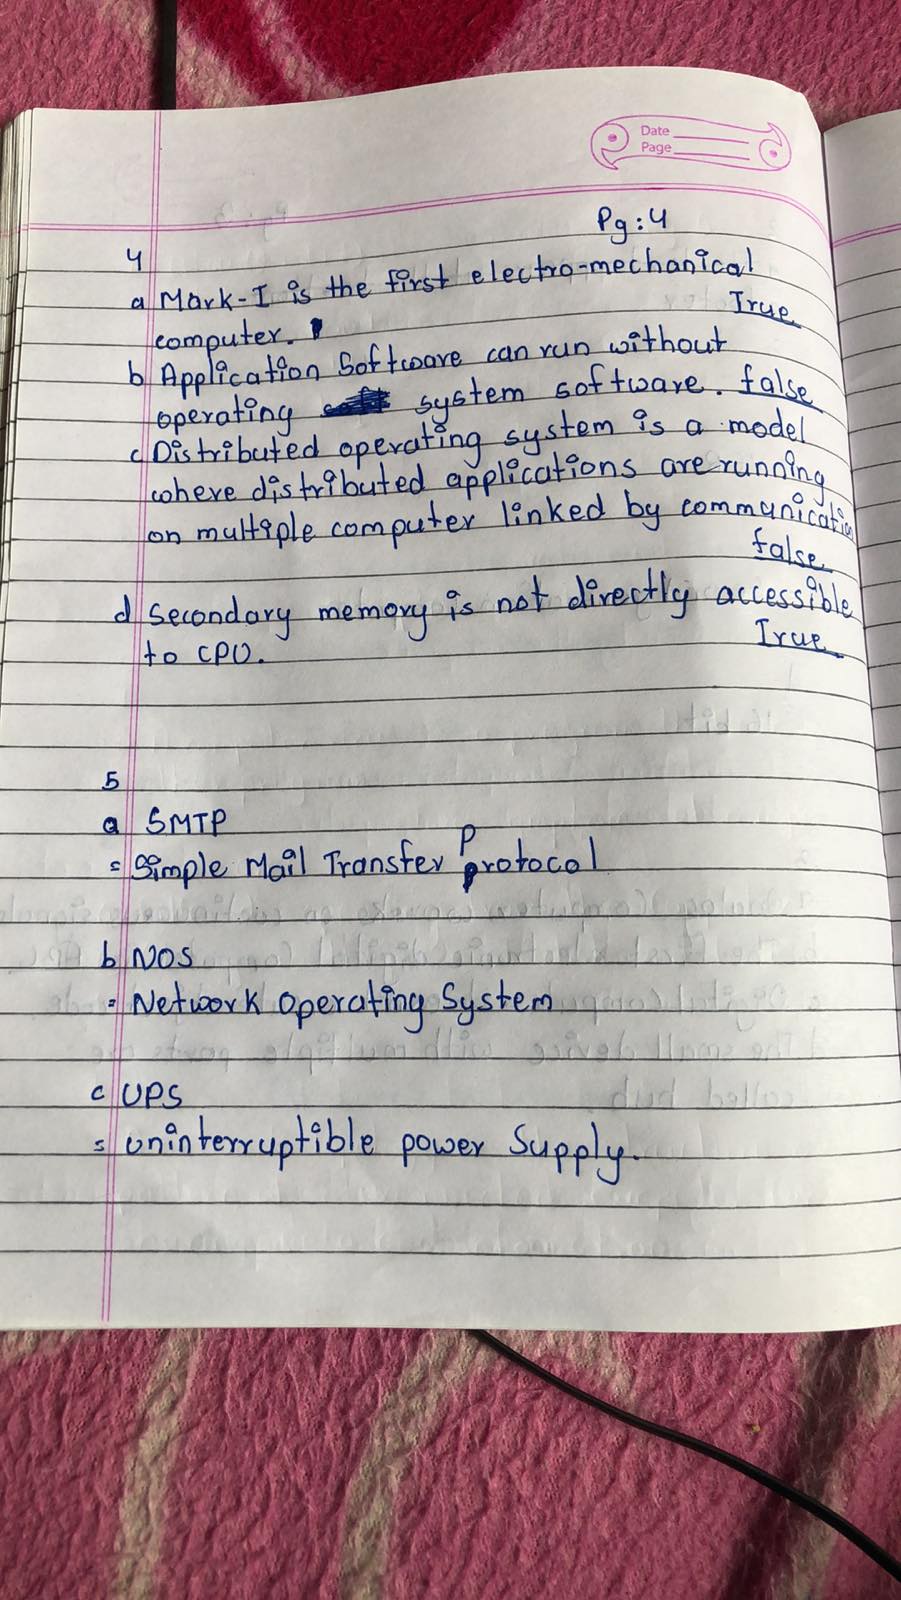 Date
Page
Pg:4
4
a Mark-I is the first electro-mechanical
computer. True
b Application Software can run without
operating system software. false
c Distributed operating system is a model
where distributed applications are running
on multiple computer linked by communicatio
false
d Secondary memory is not directly accessible
to CPU. True
5
a SMTP
= Simple Mail Transfer Protocol
b NOS
= Network Operating System
c UPS
= Uninterruptible power Supply.